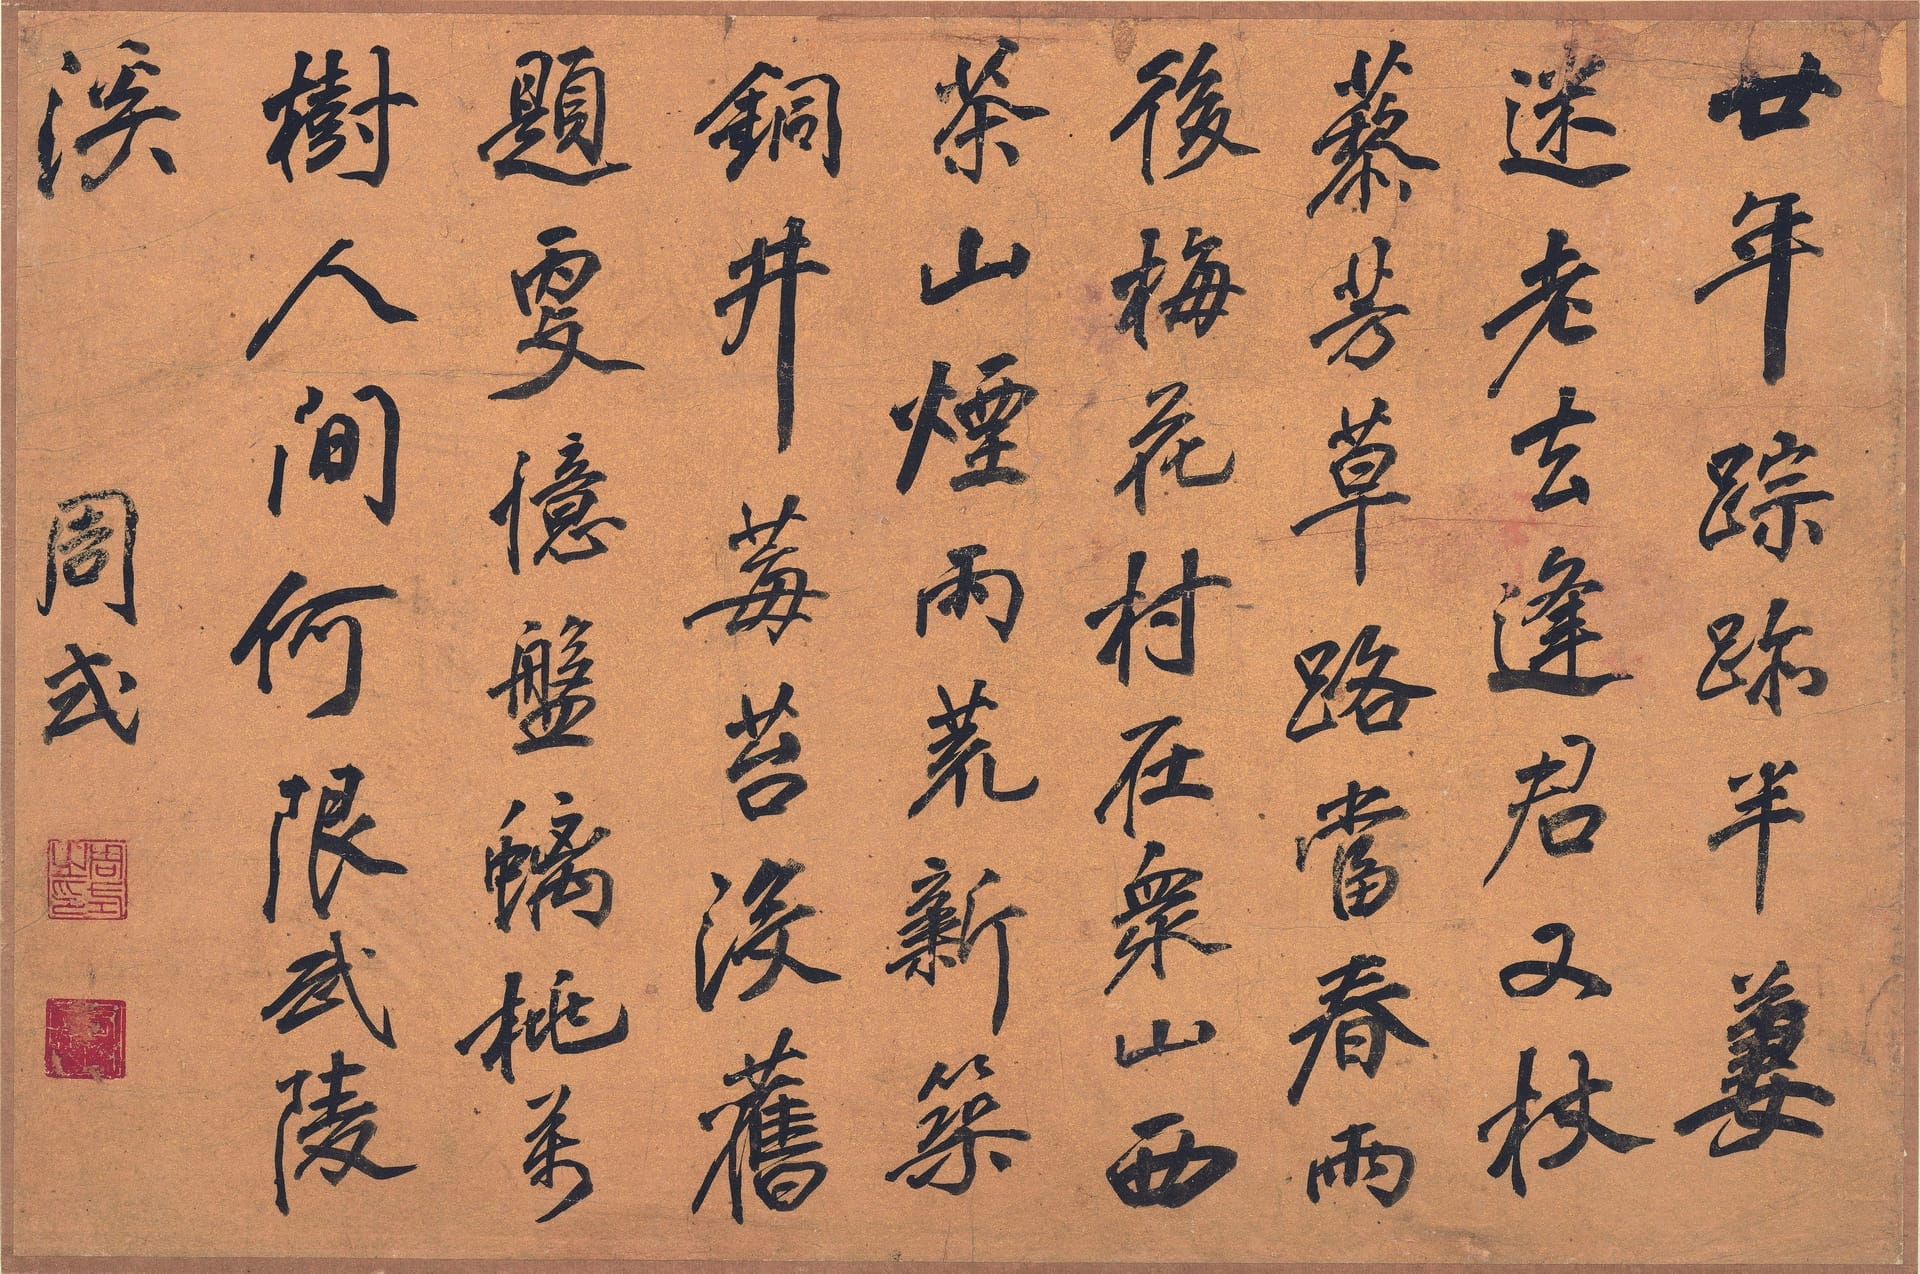 廿年踪跡半萋
迷老去逢君又杖
藜芳草路當春雨
後梅花村在衆山西
茶山煙雨荒新築
銅井莓苔沒舊
題更憶盤螭桃萬
樹人間何限武陵
溪 周式